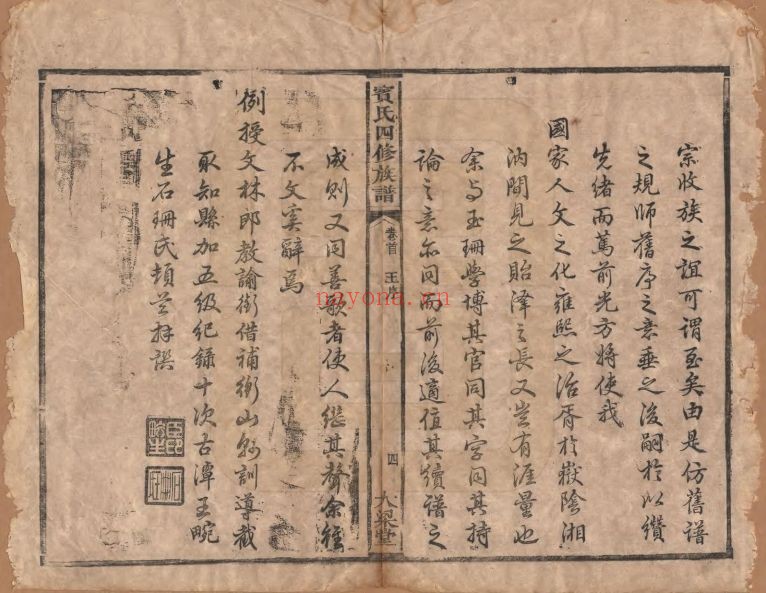 宗收族之誼可謂至矣由是仿舊譜
之規師舊序之意垂之後嗣於以纘
先緒而篤前光方將使我
國家人文之化雍熙之治胥於嶽陰湘
汭間見之貽澤之長又豈有涯量也
余與玉珊學博其官同其字同其持
論之意亦同而前後適值其續譜之
竇氏四修族譜
卷首
王序
四
大梁堂
成則又同善歌者使人繼其聲余雖
不文奚辭焉
例授文林郎教諭銜借補衡山縣訓導截
取知縣加五級紀錄十次古潭王畹
生石珊氏頓首拜譔
nayona.cn